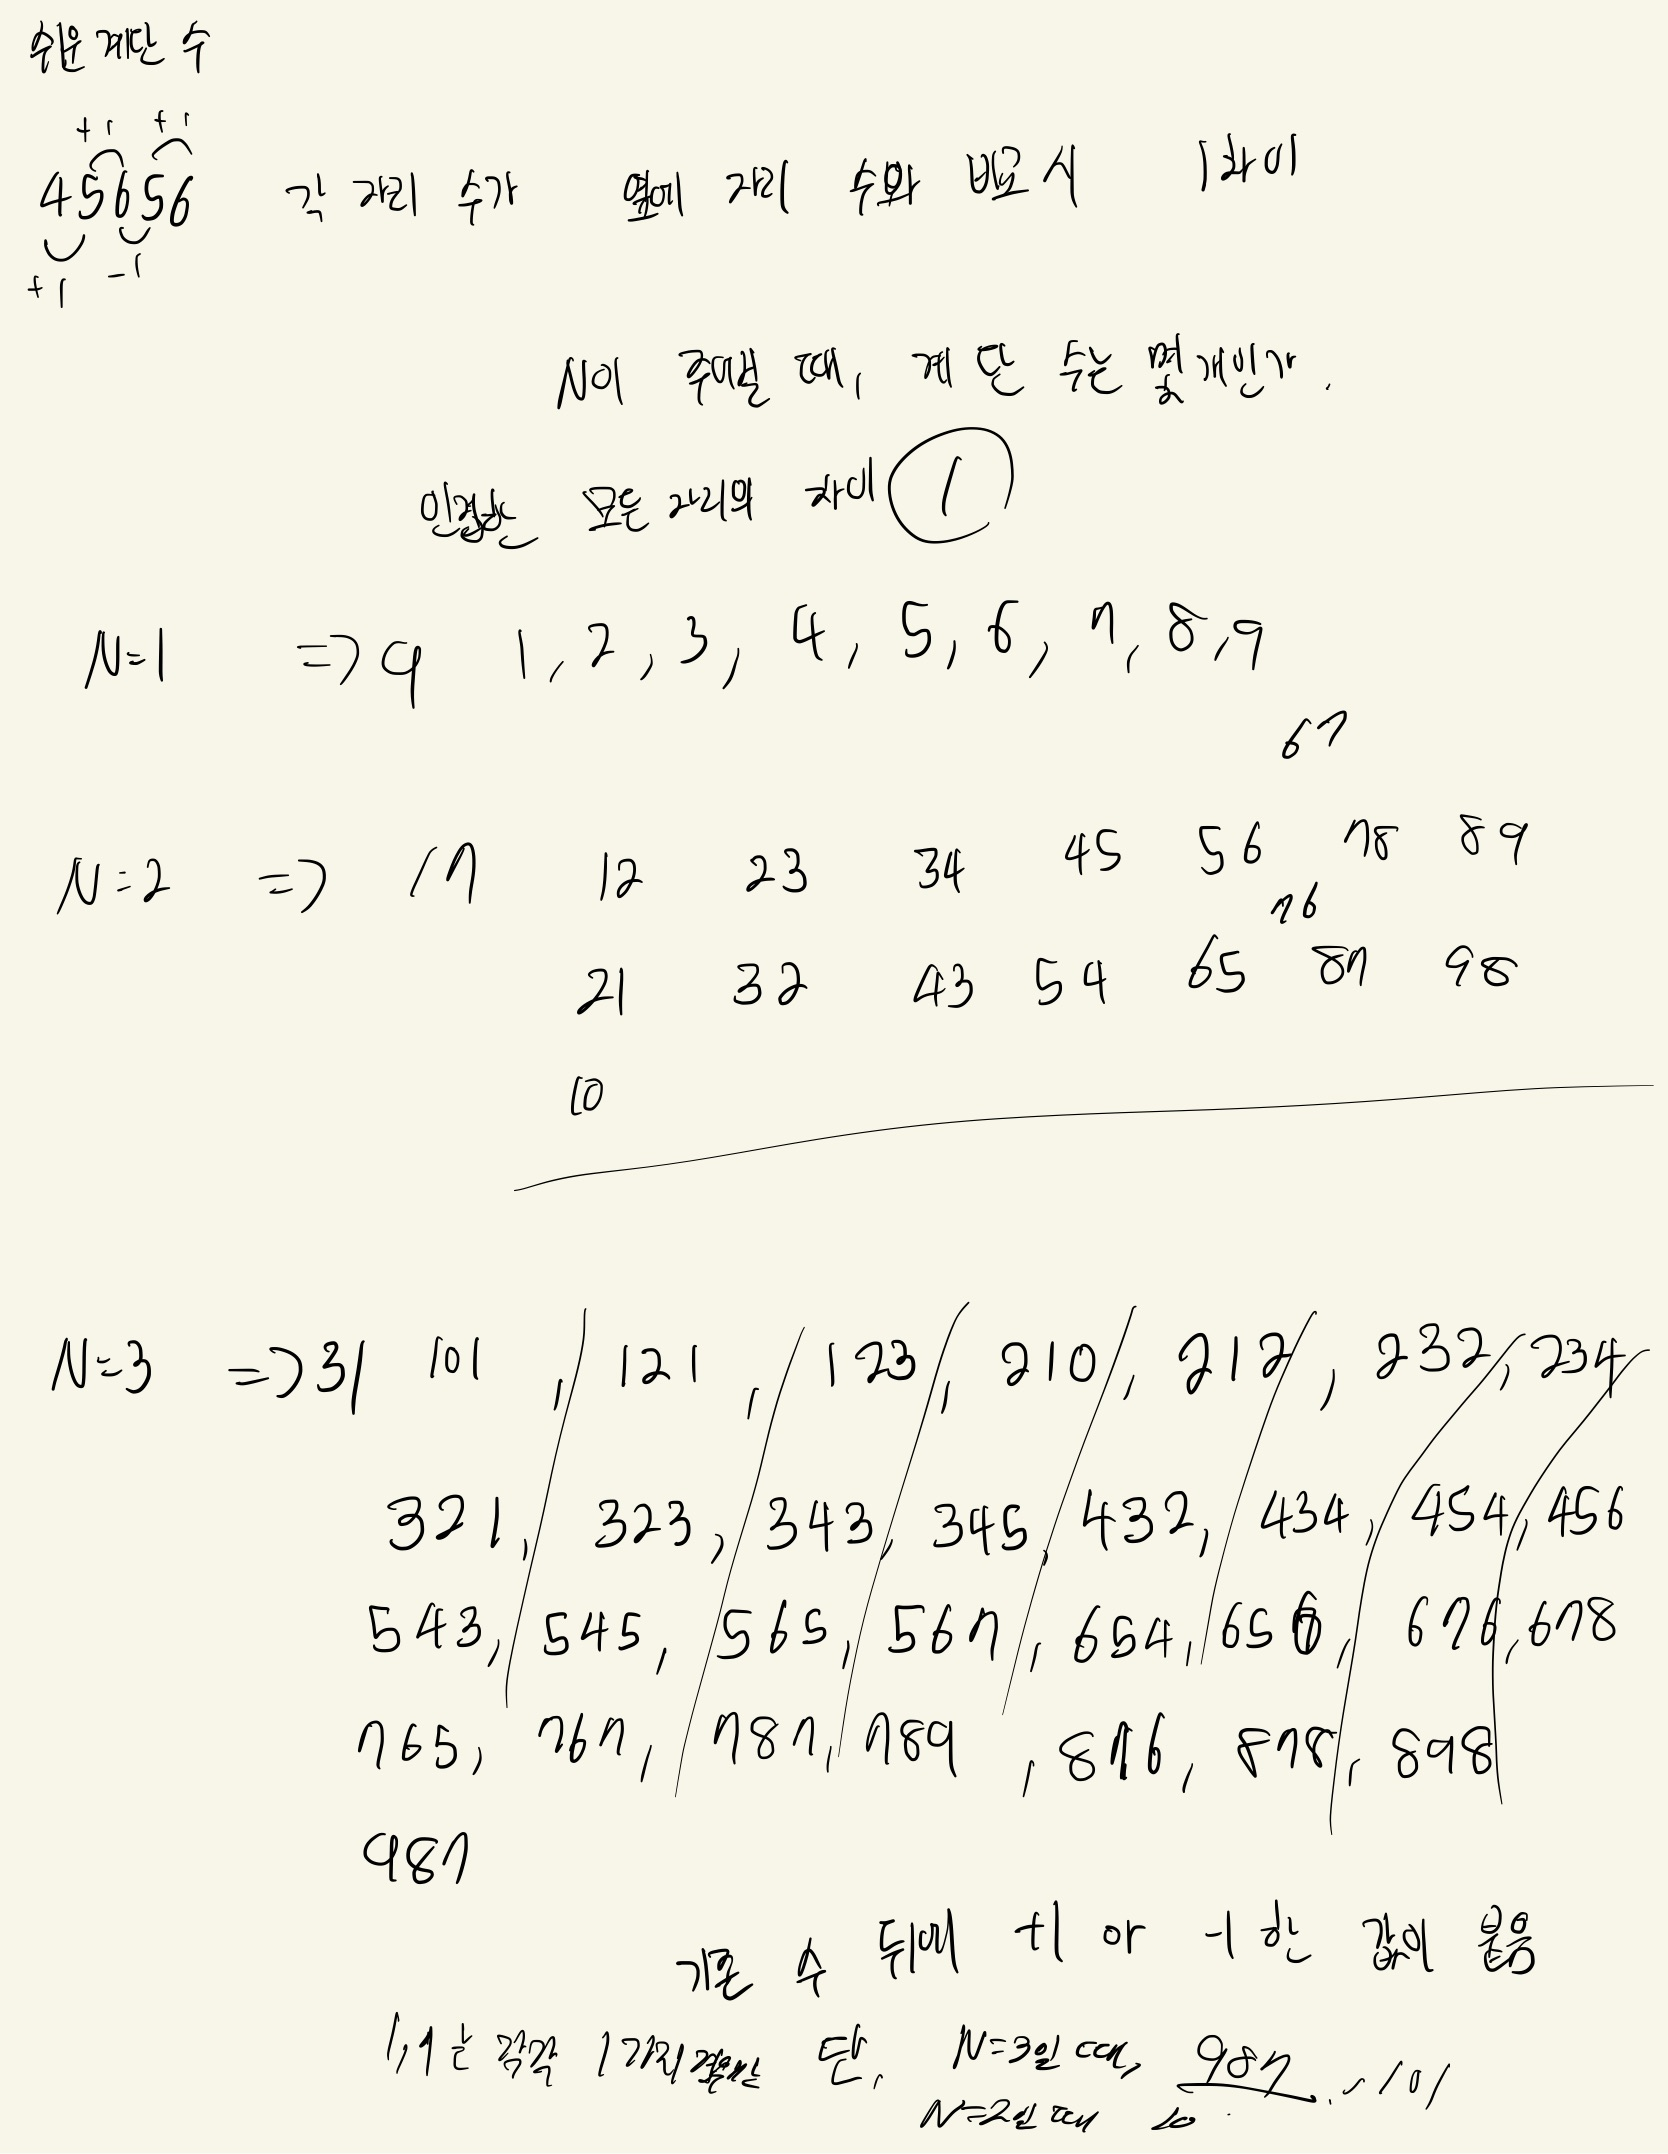 쉬운 계단 수
+1 +1
45656 각 자리 수가 옆에 자리 수와 비교 시 1차이
+1 -1
N이 주어질 때, 계단 수는 몇 개인가.
인접한 모든 자리의 차이 1
N=1 => 9 1, 2, 3, 4, 5, 6, 7, 8, 9
67
N=2 => 17 12 23 34 45 56 78 89
76
21 32 43 54 65 87 98
10
N=3 => 31 101, 121, 123, 210, 212, 232, 234
321, 323, 343, 345, 432, 434, 454, 456
543, 545, 565, 567, 654, 656, 676, 678
765, 767, 787, 789, 876, 878, 898
987
기존 수 뒤에 +1 or -1 한 값이 붙음
는 각각 1가지 단, N=3일 때, 987 101
N=2일 때 10